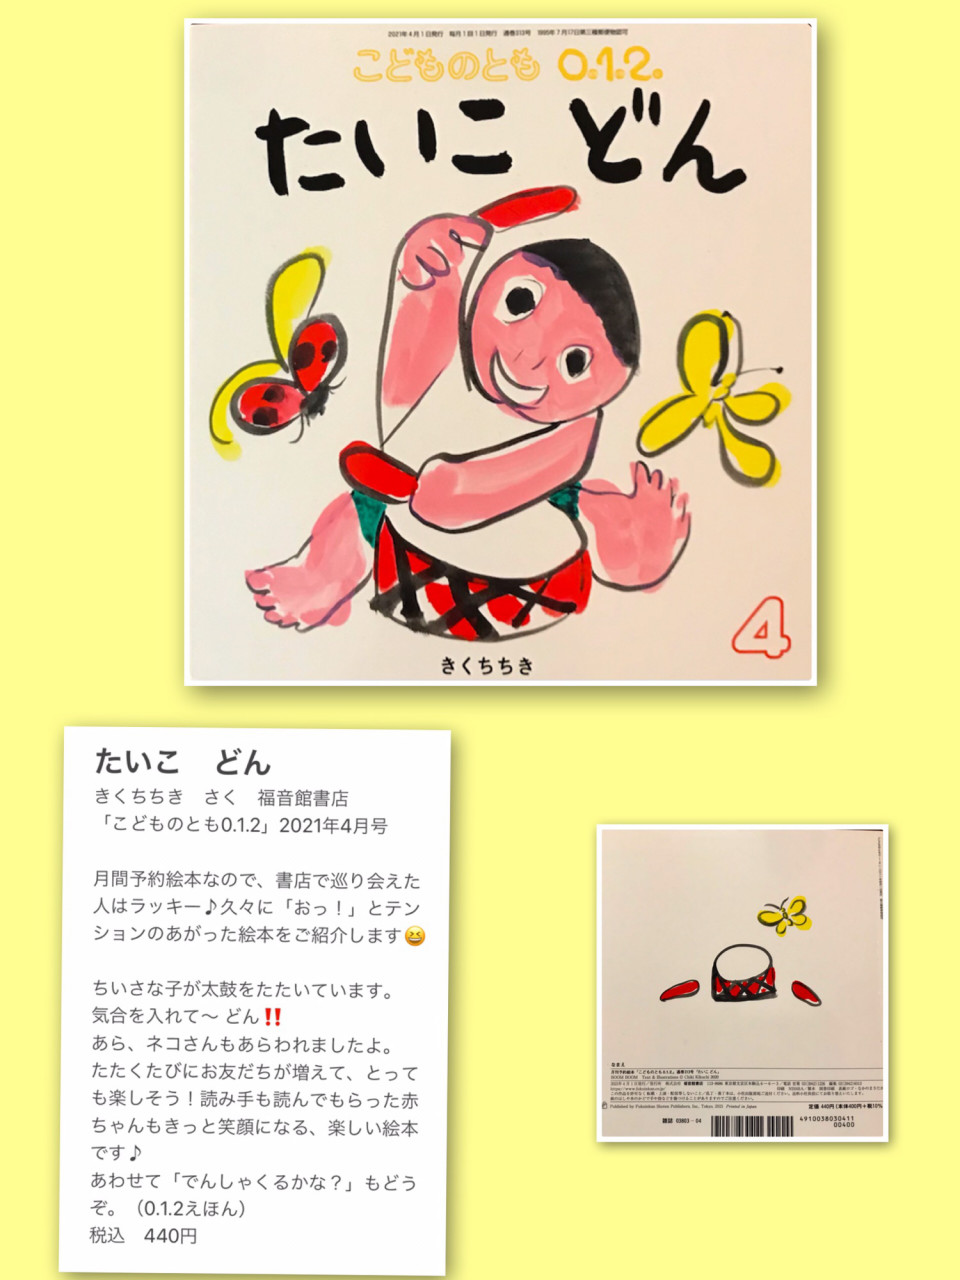 2021年4月1日発行 毎月1回1日発行 通巻313号
こどものとも 0.1.2.
たいこ どん
4
きくちちき
たいこ どん
きくちちき さく 福音館書店
「こどものとも0.1.2」2021年4月号
月間予約絵本なので、書店で巡り会えた
人はラッキー♪久々に「おっ！」とテン
ションのあがった絵本をご紹介します😆
ちいさな子が太鼓をたたいています。
気合を入れて〜 どん‼️
あら、ネコさんもあらわれましたよ。
たたくたびにお友だちが増えて、とって
も楽しそう！読み手も読んでもらった赤
ちゃんもきっと笑顔になる、楽しい絵本
です♪
あわせて「でんしゃくるかな？」もどう
ぞ。（0.1.2えほん）
税込 440円
なまえ
定価 440円
雑誌 03803-04
4910038030411
00400